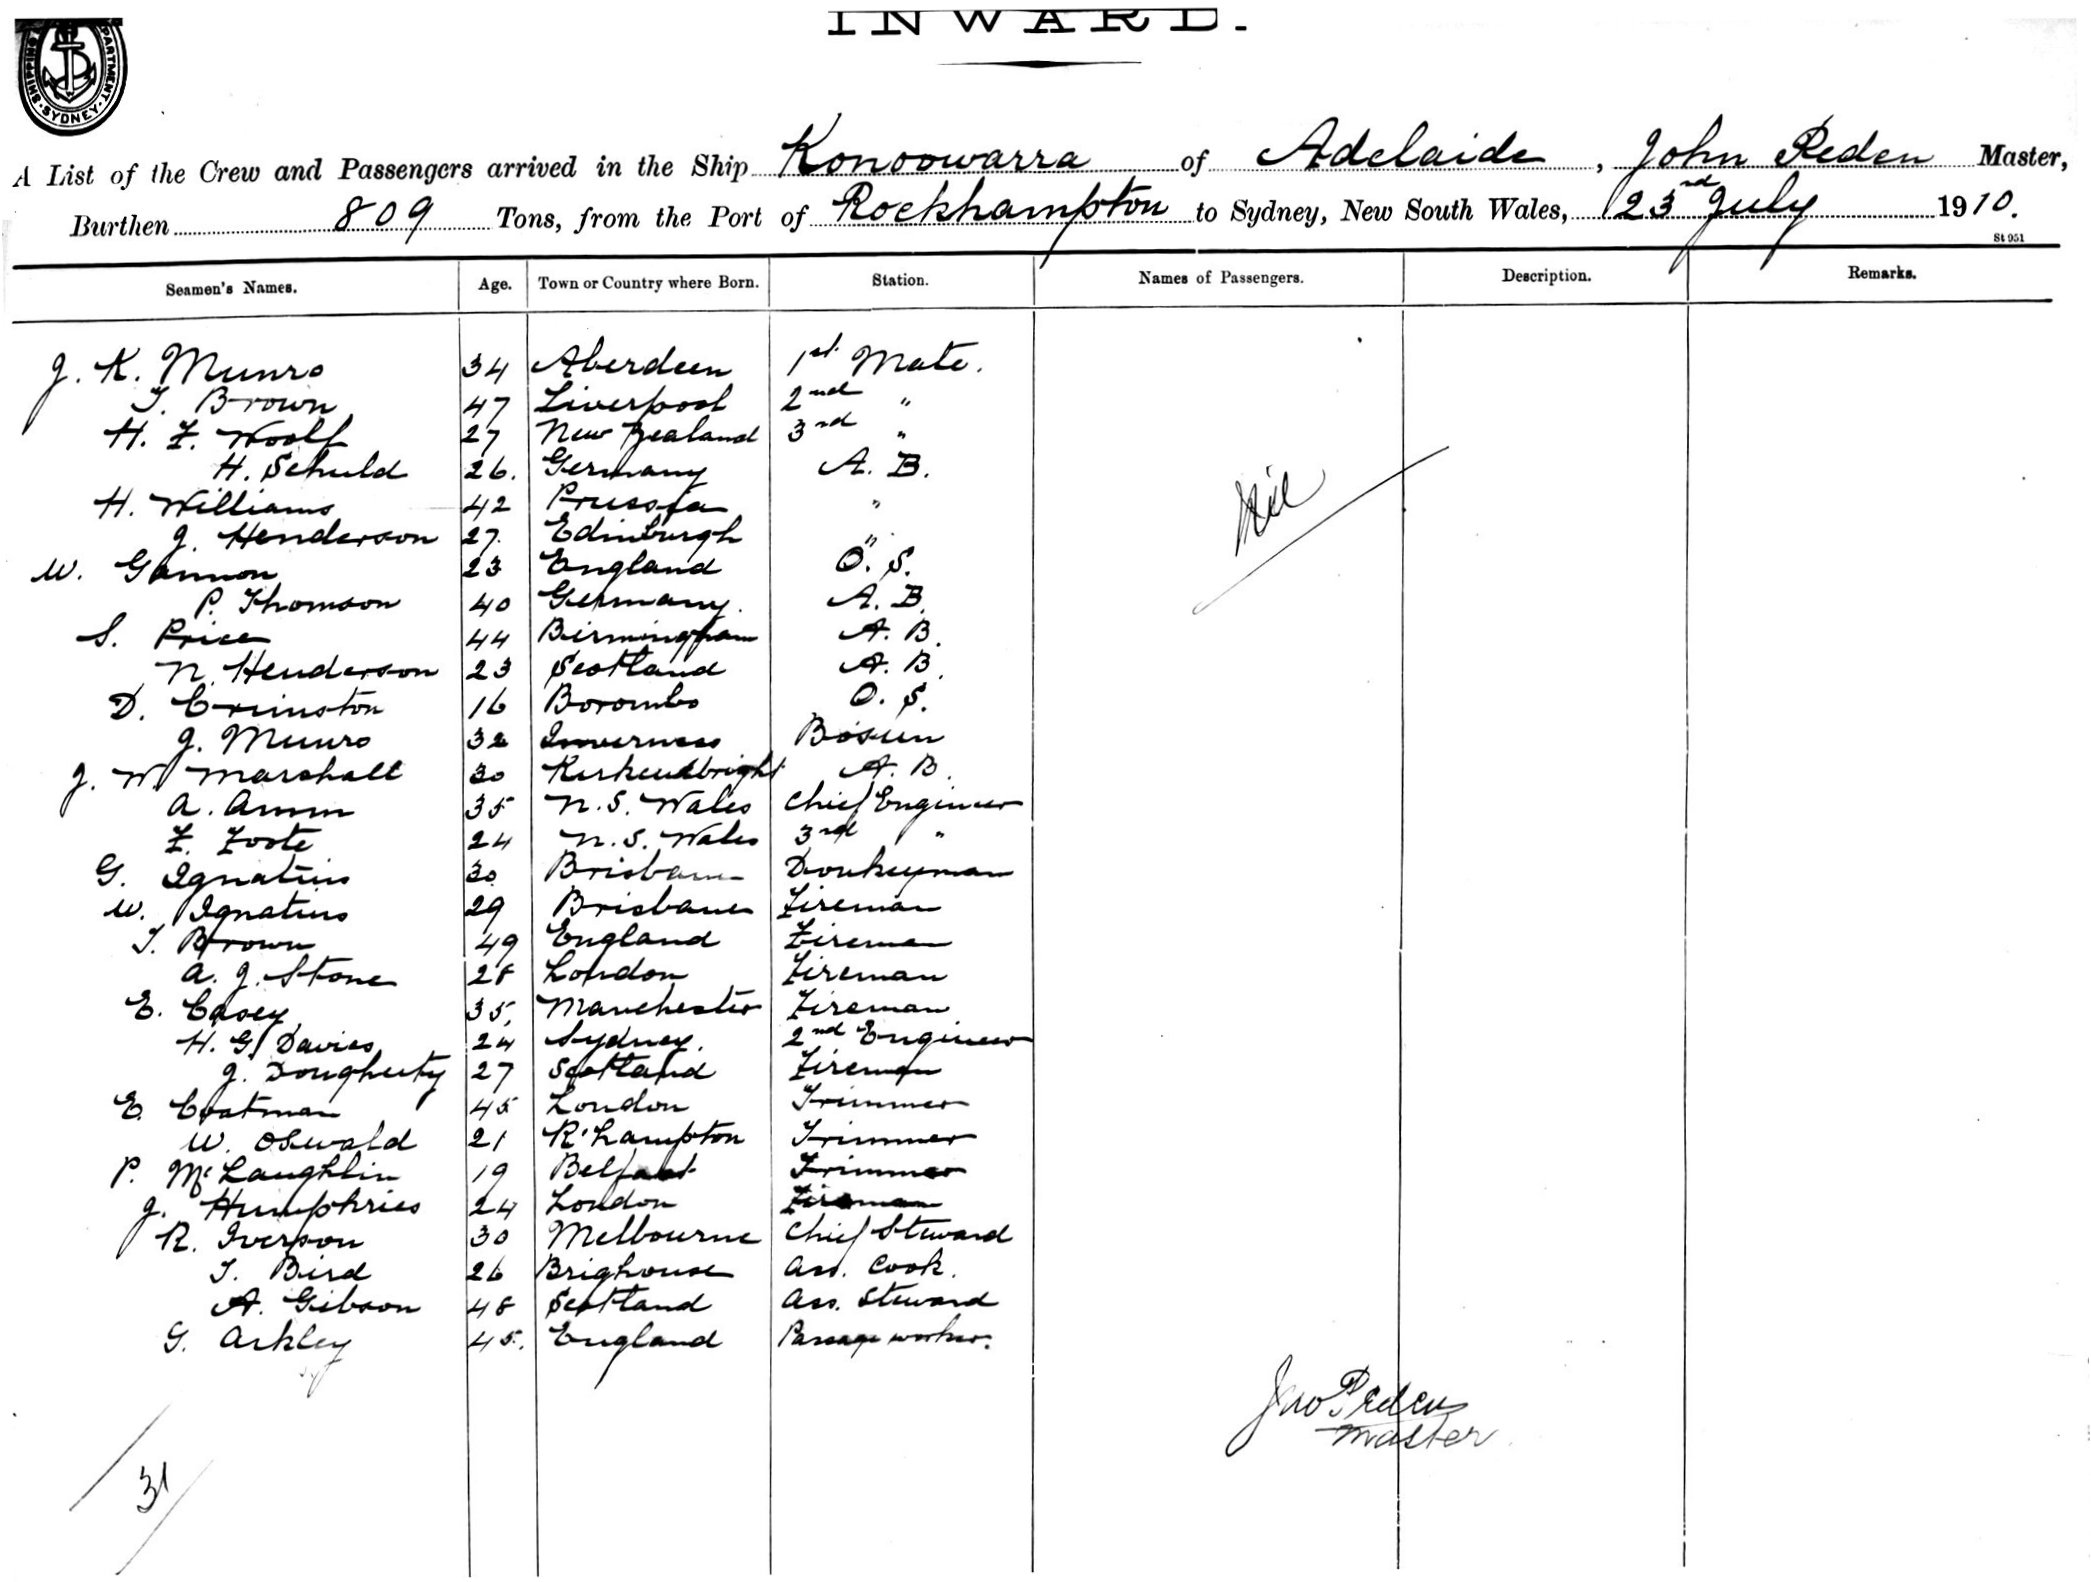 INWARD.
SHIPPING DEPARTMENT · SYDNEY ·
A List of the Crew and Passengers arrived in the Ship Konoowarra of Adelaide, John Reden Master,
Burthen 809 Tons, from the Port of Rockhampton to Sydney, New South Wales, 23nd July 1910.
St 951
Seamen's Names. Age. Town or Country where Born. Station. Names of Passengers. Description. Remarks.
J. K. Munro 34 Aberdeen 1st Mate.
T. Brown 47 Liverpool 2nd "
H. F. Woolf 27 New Zealand 3rd "
H. Schuld 26. Germany A. B.
H. Williams 42 Prussia "
J. Henderson 27. Edinburgh "
W. Gannon 23 England O. S.
P. Thomson 40 Germany. A. B.
S. Price 44 Birmingham A. B.
N. Henderson 23 Scotland A. B.
D. Criminston 16 Borombo O. S.
J. Munro 32 Inverness Bosun
J. W. Marshall 30 Kirkcudbright A. B.
A. Amm 35 N. S. Wales Chief Engineer
F. Foote 24 N. S. Wales 3rd "
G. Ignatius 30 Brisbane Donkeyman
W. Ignatius 29 Brisbane Fireman
T. Brown 49 England Fireman
A. J. Stone 28 London Fireman
E. Casey 35. Manchester Fireman
H. G. Davies 24 Sydney. 2nd Engineer
J. Dougherty 27 Scotland Fireman
E. Coatman 45 London Trimmer
W. Oswald 21 R'hampton Trimmer
P. McLaughlin 19 Belfast Trimmer
J. Humphries 24 London Fireman
R. Iverson 30 Melbourne Chief Steward
T. Bird 26 Brighouse Ass. Cook.
A. Gibson 48 Scotland Ass. Steward
G. Arkley 45. England Passage worker.
Nil
Jno Peden
Master
31